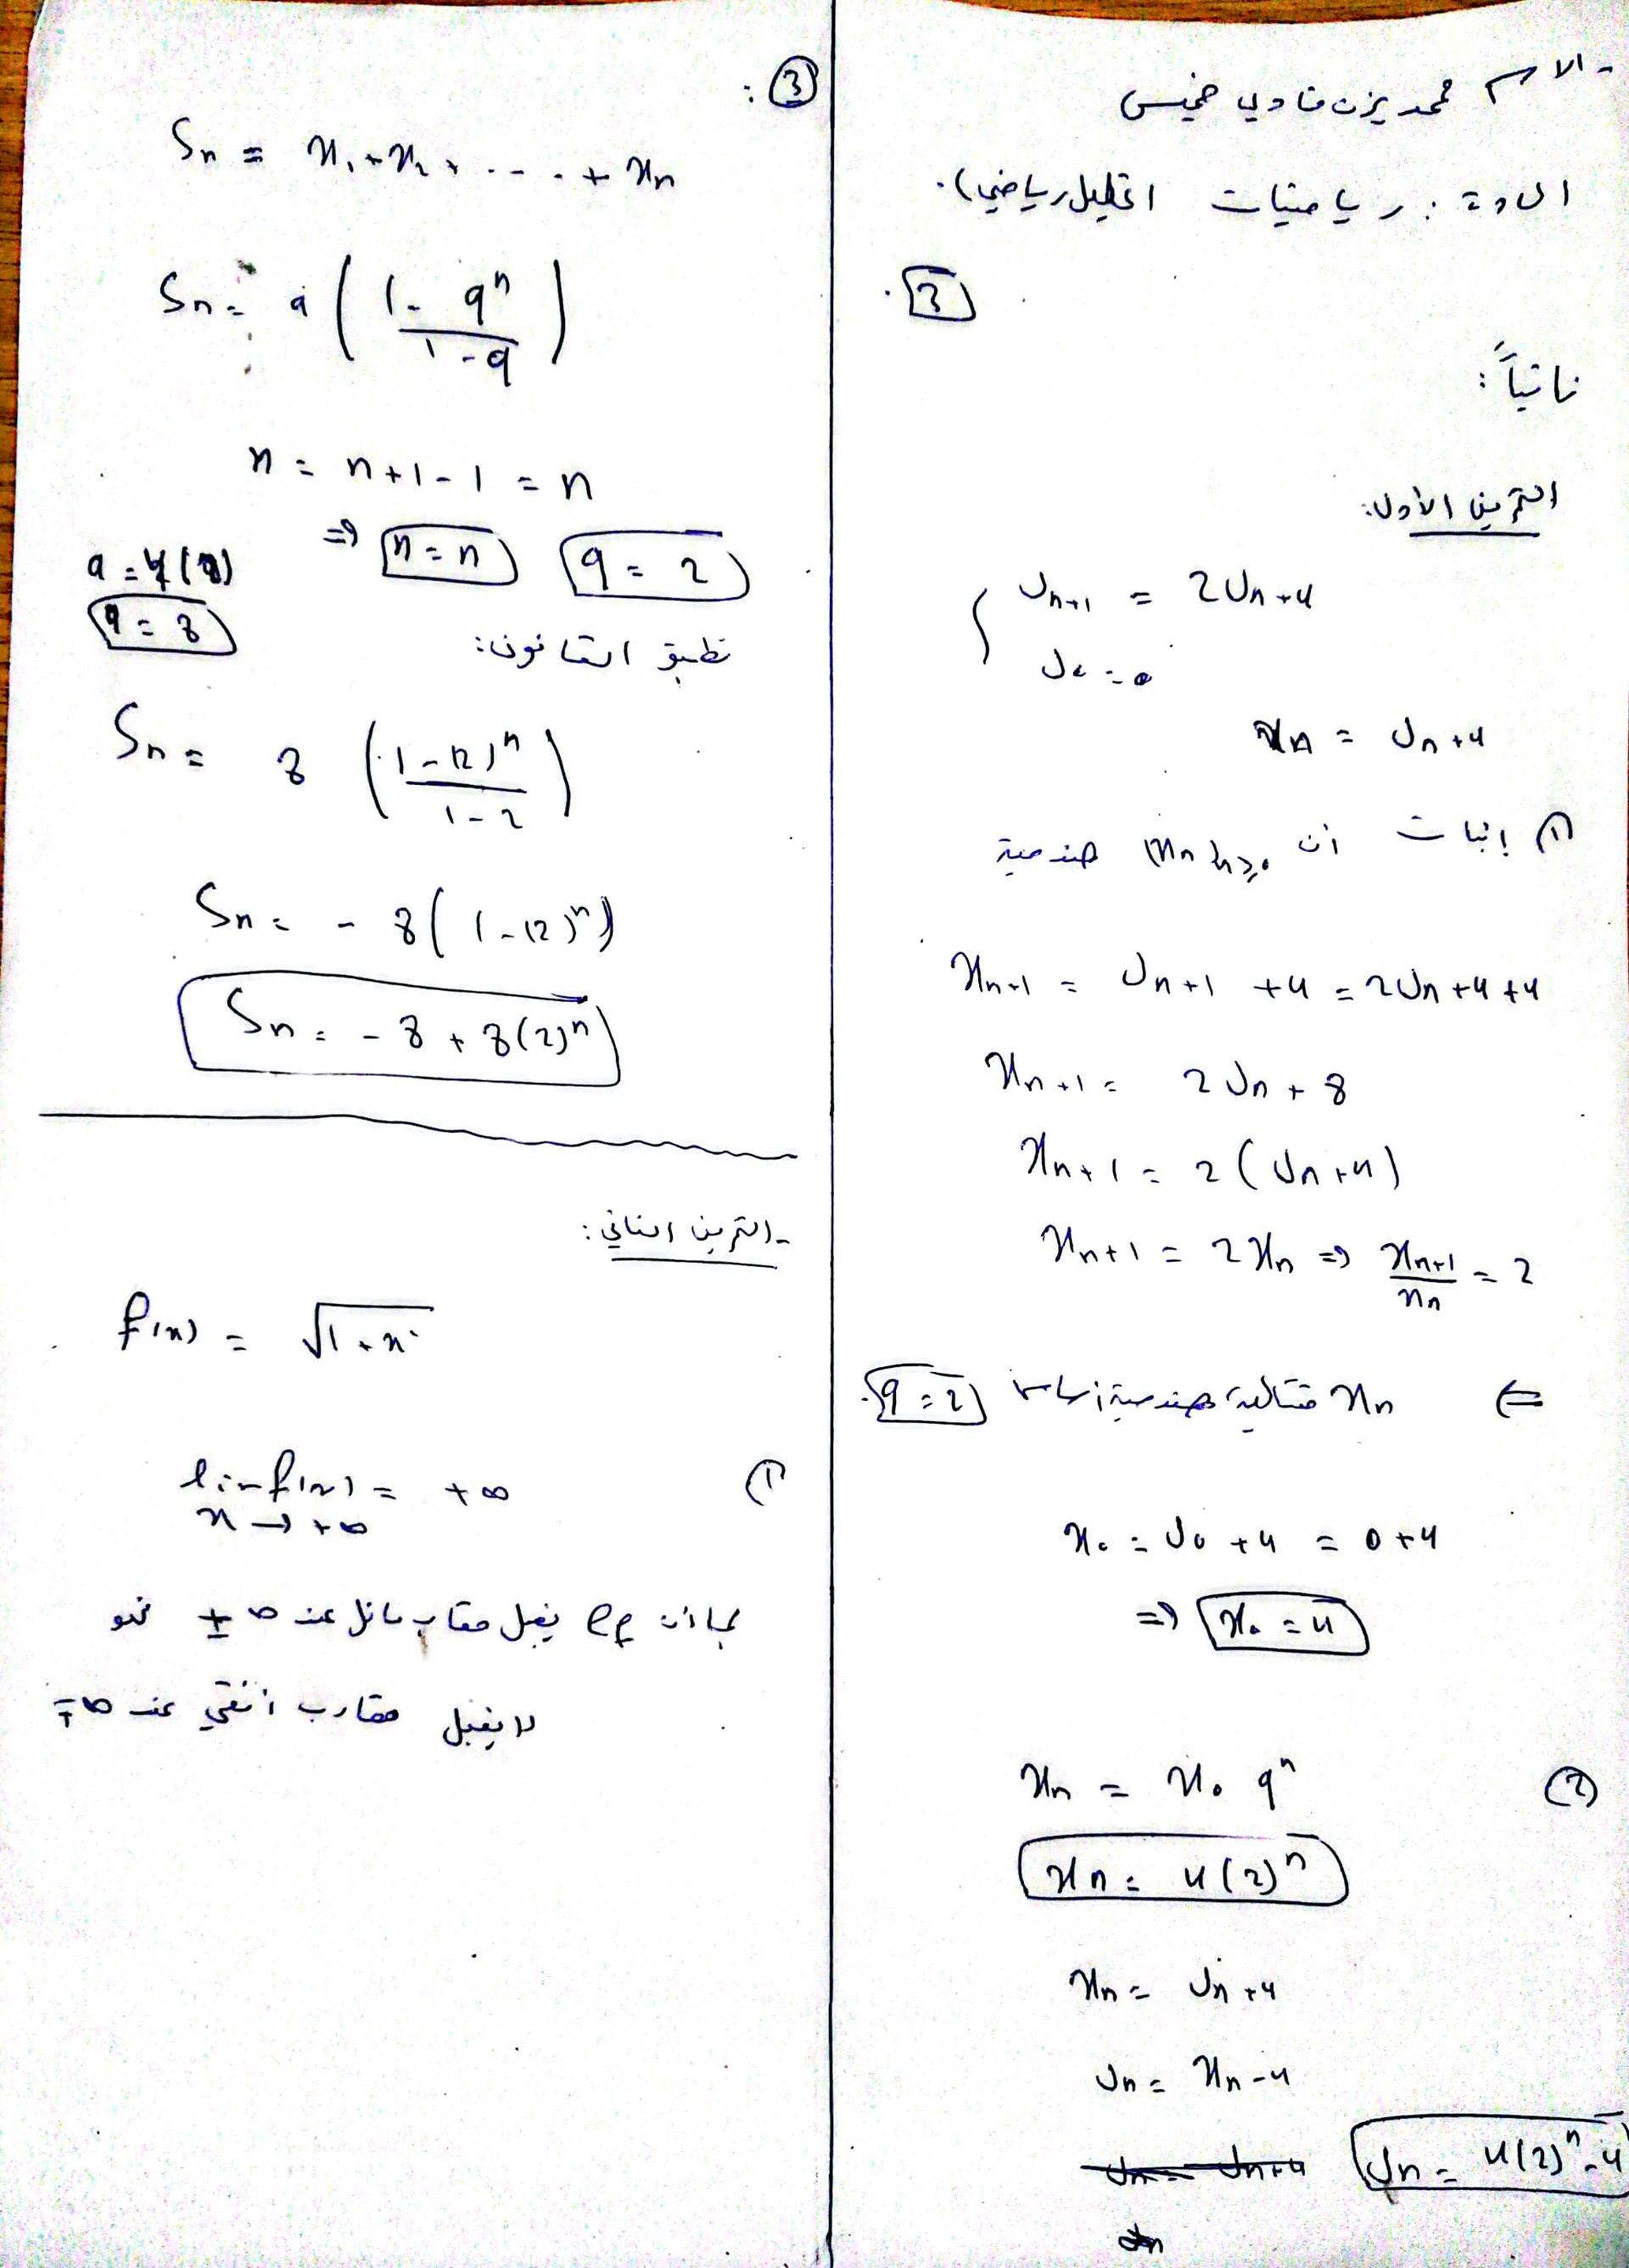 - الاسم محمد يزن فادي خميس
المادة : رياضيات (تحليل رياضي).
3
ثانياً:
التمرين الأول:
Un+1 = 2Un+4
U0 = 0
xn = Un+4
(1 إثبات أن (xn)n≥0 هندسية
xn+1 = Un+1 +4 = 2Un+4+4
xn+1 = 2Un + 8
xn+1 = 2(Un+4)
xn+1 = 2xn ⇒ xn+1/xn = 2
⇐ xn متتالية هندسية أساسها q=2.
x0 = U0 +4 = 0+4
⇒ x0 = 4
(2
xn = x0 q^n
xn = 4(2)^n
xn = Un+4
Un = xn-4
Un = 4(2)^n-4
3:
Sn = x1+x2+....+xn
Sn = a(1-q^n/1-q)
n = n+1-1 = n
⇒ n=n q=2
a=4(2)
a=8
نطبق القانون:
Sn = 8(1-(2)^n/1-2)
Sn = -8(1-(2)^n)
Sn = -8+8(2)^n
- التمرين الثاني:
f(x) = √1+x²
(1
lim f(x) = +∞
x→+∞
بما أن cf يقبل مقارب مائل عند ±∞ فهو
لا يقبل مقارب أفقي عند ∓∞